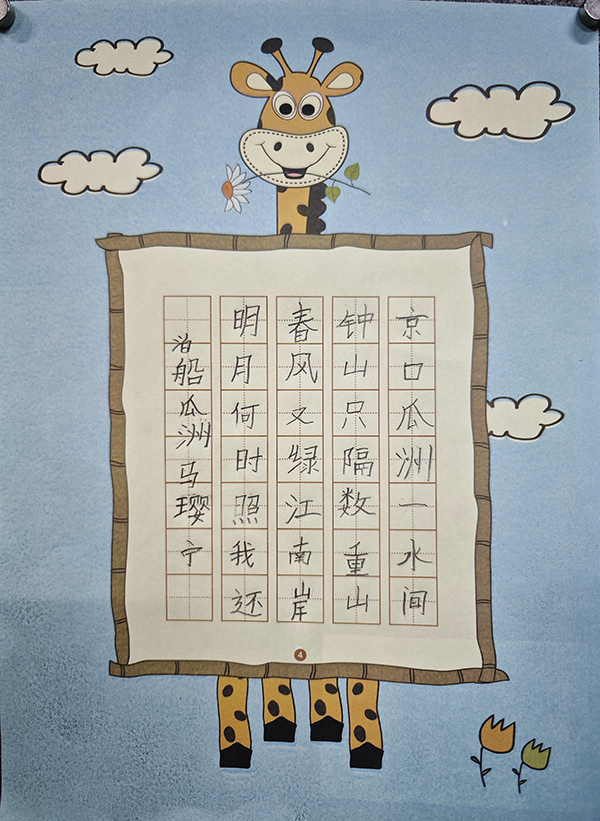 京口瓜洲一水间
钟山只隔数重山
春风又绿江南岸
明月何时照我还
泊船瓜洲 马璎宁
4